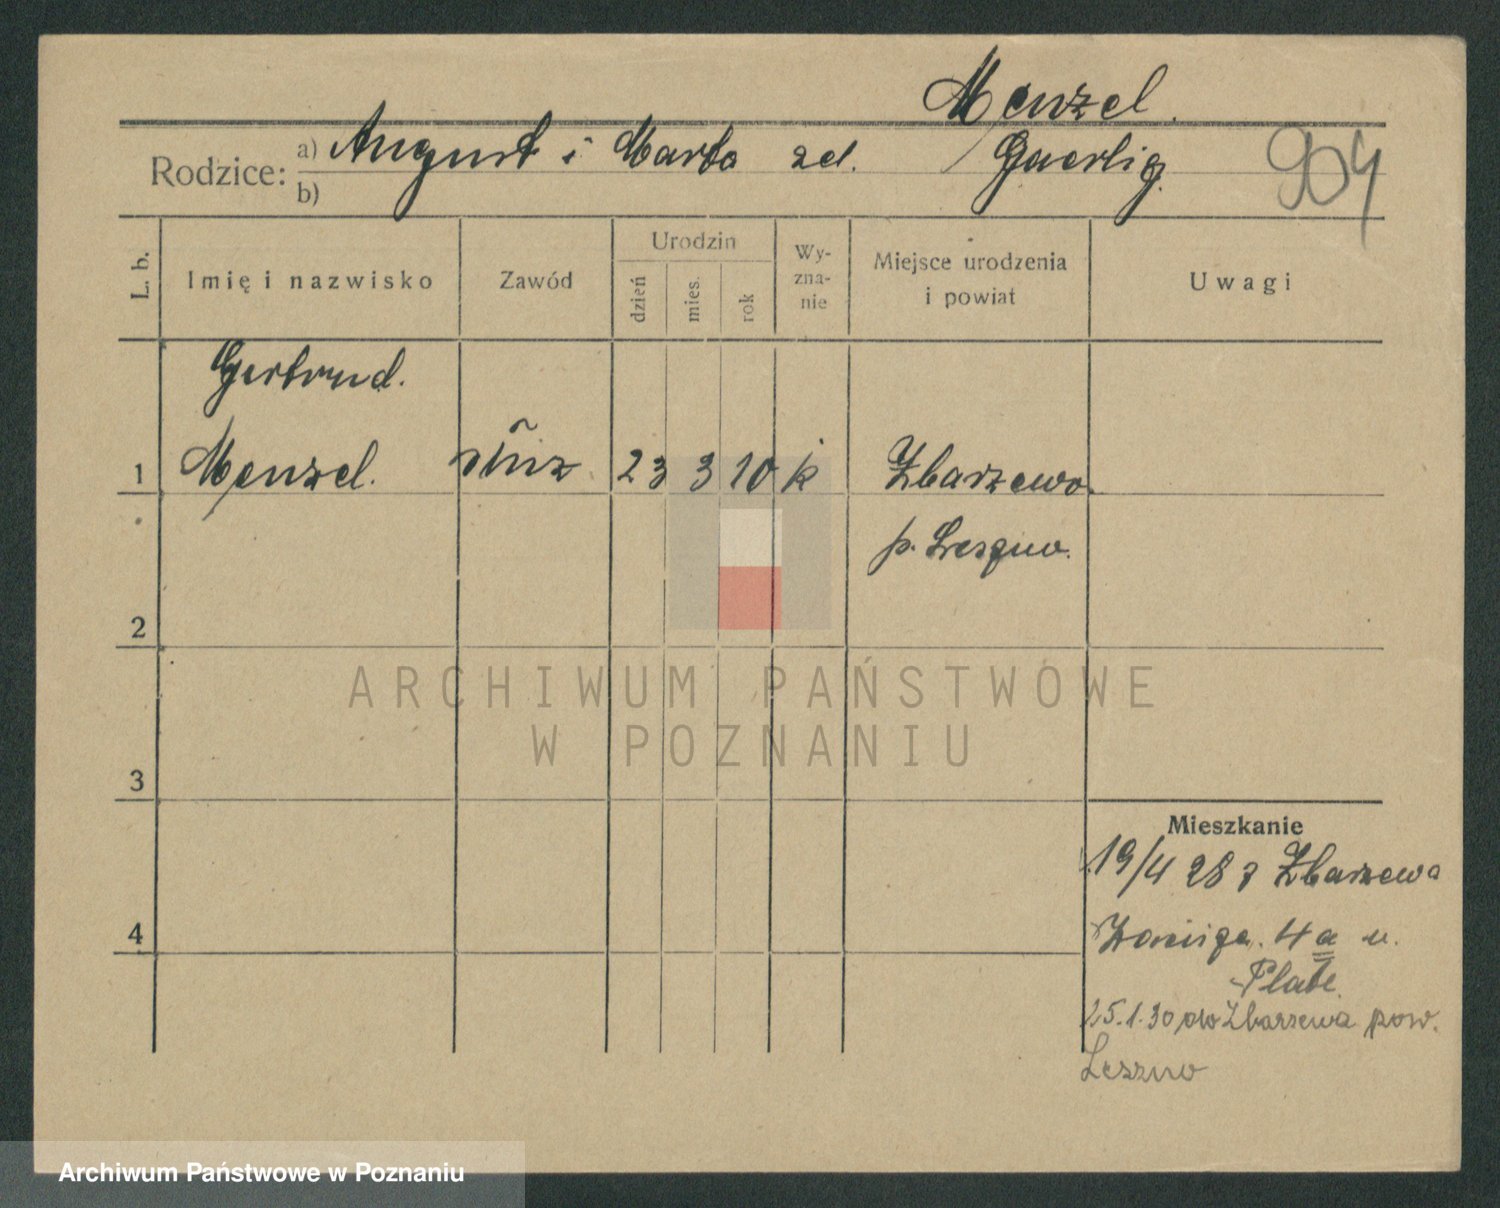 Menzel.
Rodzice: a) August i Marta zd. Gaertig
b)
904
L. b.
Imię i nazwisko
Zawód
Urodzin
dzień
mies.
rok
Wy-
zna-
nie
Miejsce urodzenia
i powiat
Uwagi
Gertrud.
1 Menzel. służ 23 3 10 k Zbarzewo
p. Leszno.
2
ARCHIWUM PAŃSTWOWE
W POZNANIU
3
Mieszkanie
19/4 28 z Zbarzewa
4 4a u.
Plate
25.1.30 do Zbarzewa pow.
Leszno
Archiwum Państwowe w Poznaniu